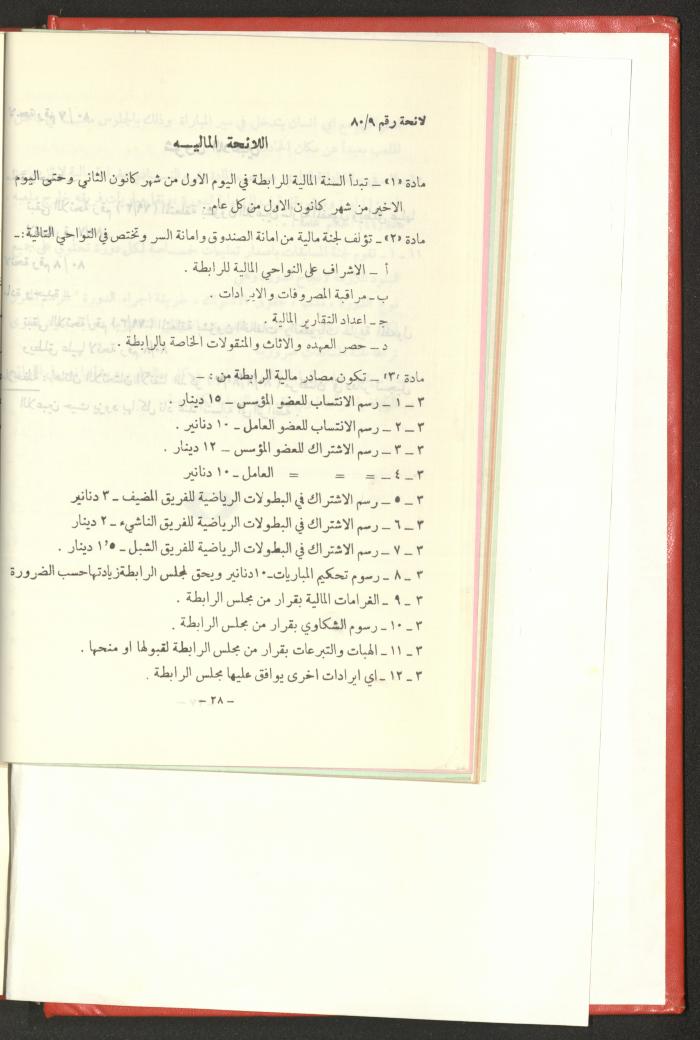 لائحة رقم ٨٠/٩
اللائحة الماليـــه
مادة «١» ــ تبدأ السنة المالية للرابطة في اليوم الاول من شهر كانون الثاني وحتى اليوم
الاخير من شهر كانون الاول من كل عام .
مادة «٢» ــ تؤلف لجنة مالية من امانة الصندوق وامانة السر وتختص في النواحي التالية: ــ
أ ــ الاشراف على النواحي المالية للرابطة .
ب ــ مراقبة المصروفات والايرادات .
ج ــ اعداد التقارير المالية .
د ــ حصر العهده والاثاث والمنقولات الخاصة بالرابطة .
مادة «٣» ــ تكون مصادر مالية الرابطة من : ــ
٣ ــ ١ ــ رسم الانتساب للعضو المؤسس ــ ١٥ دينار .
٣ ــ ٢ ــ رسم الانتساب للعضو العامل ــ ١٠ دنانير .
٣ ــ ٣ ــ رسم الاشتراك للعضو المؤسس ــ ١٢ دينار .
٣ ــ ٤ ــ = = = العامل ــ ١٠ دنانير
٣ ــ ٥ ــ رسم الاشتراك في البطولات الرياضية للفريق المضيف ــ ٣ دنانير
٣ ــ ٦ ــ رسم الاشتراك في البطولات الرياضية للفريق الناشيء ــ ٢ دينار
٣ ــ ٧ ــ رسم الاشتراك في البطولات الرياضية للفريق الشبل ــ ١٬٥ دينار .
٣ ــ ٨ ــ رسوم تحكيم المباريات ــ ١٠دنانير ويحق لمجلس الرابطة زيادتها حسب الضرورة
٣ ــ ٩ ــ الغرامات المالية بقرار من مجلس الرابطة .
٣ ــ ١٠ ــ رسوم الشكاوي بقرار من مجلس الرابطة .
٣ ــ ١١ ــ الهبات والتبرعات بقرار من مجلس الرابطة لقبولها او منحها .
٣ ــ ١٢ ــ اي ايرادات اخرى يوافق عليها مجلس الرابطة .
ــ ٢٨ ــ